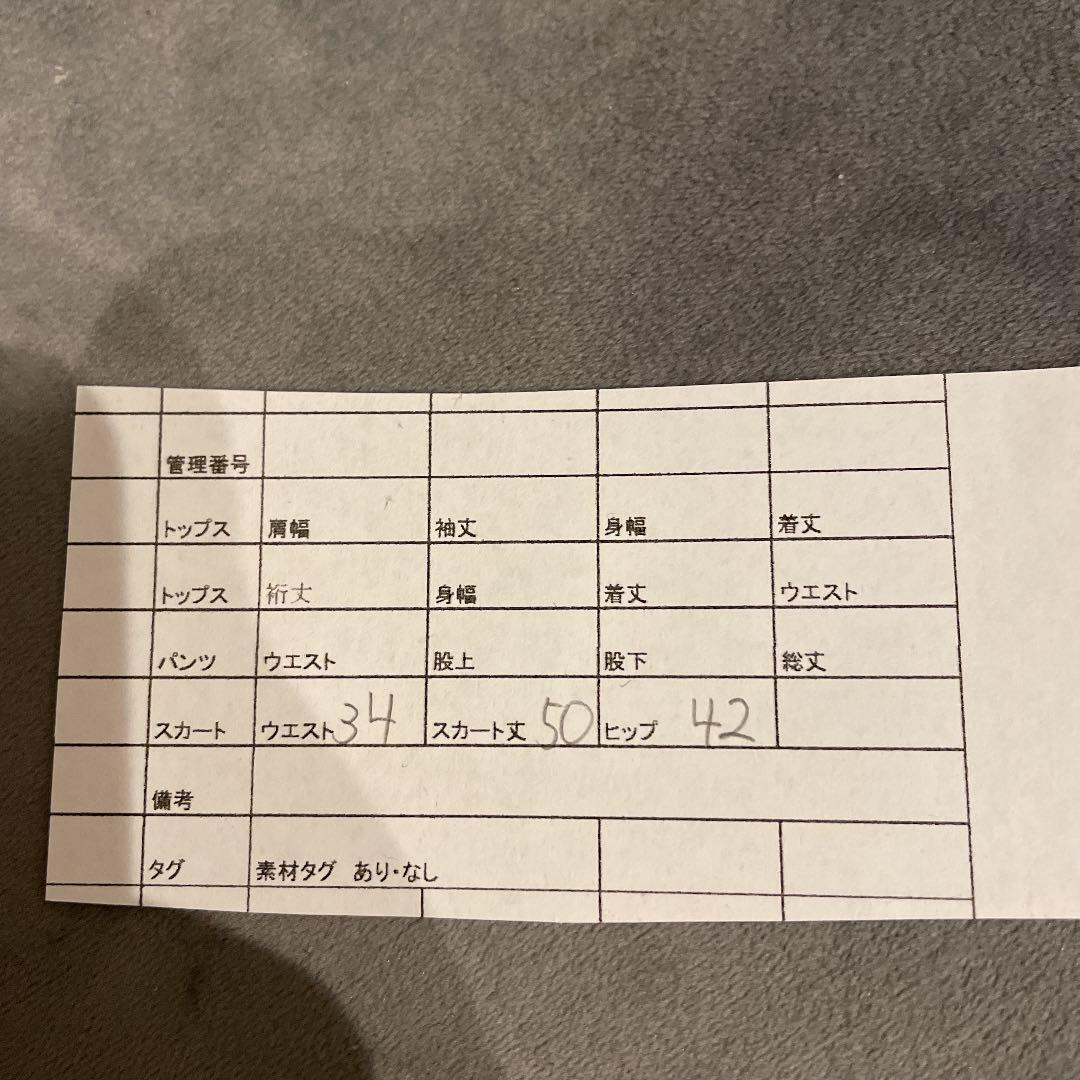 管理番号
トップス 肩幅 袖丈 身幅 着丈
トップス 裄丈 身幅 着丈 ウエスト
パンツ ウエスト 股上 股下 総丈
スカート ウエスト34 スカート丈 50 ヒップ 42
備考
タグ 素材タグ あり・なし